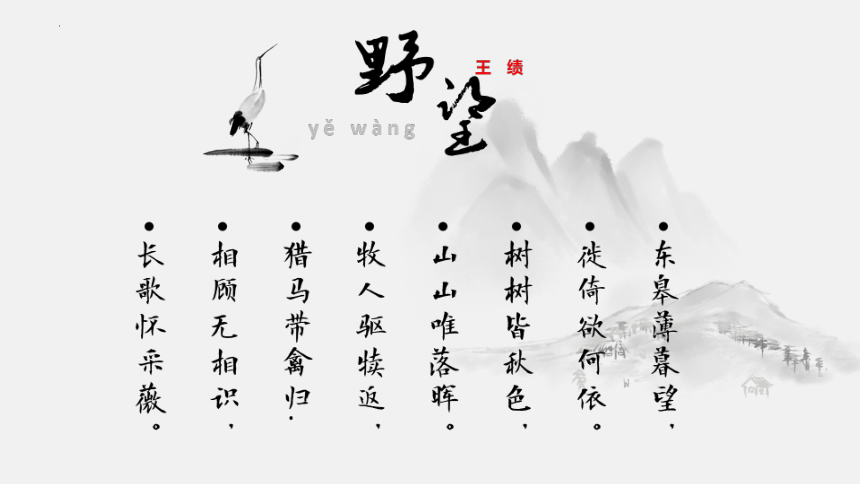 野望
王 绩
yě wàng
东皋薄暮望，
徙倚欲何依。
树树皆秋色，
山山唯落晖。
牧人驱犊返，
猎马带禽归.
相顾无相识，
长歌怀采薇。